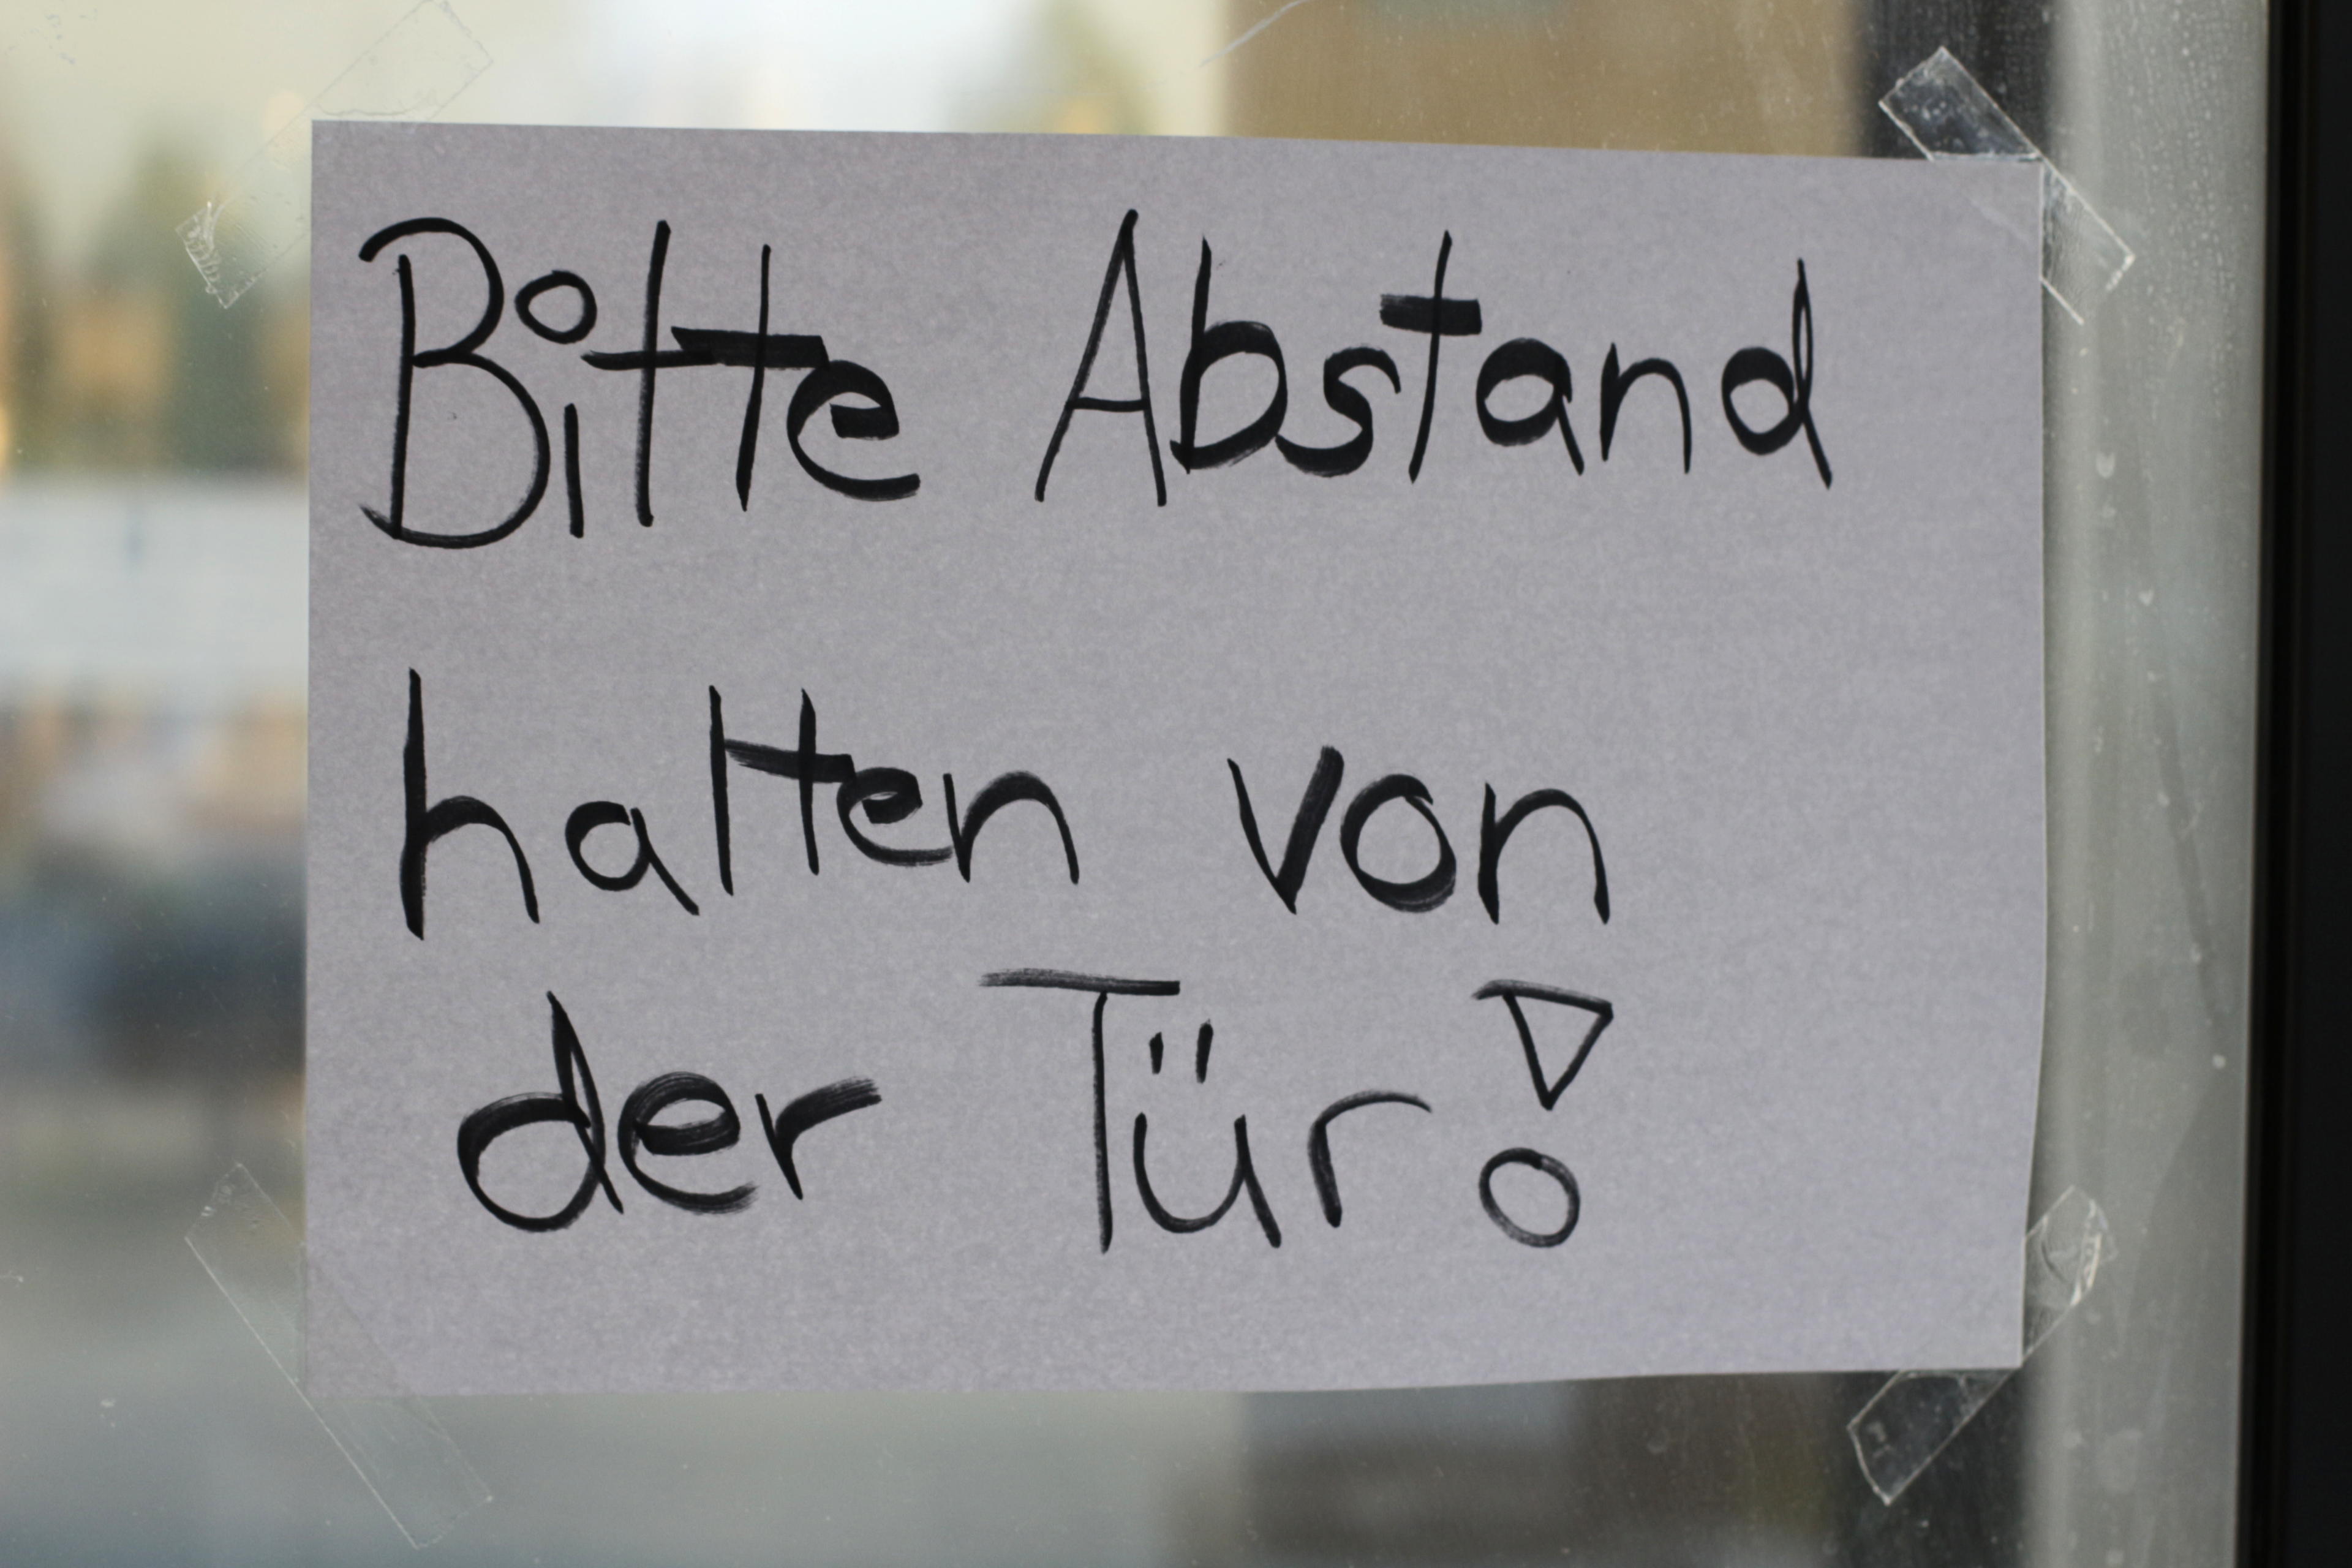 Bitte Abstand
halten von
der Tür!